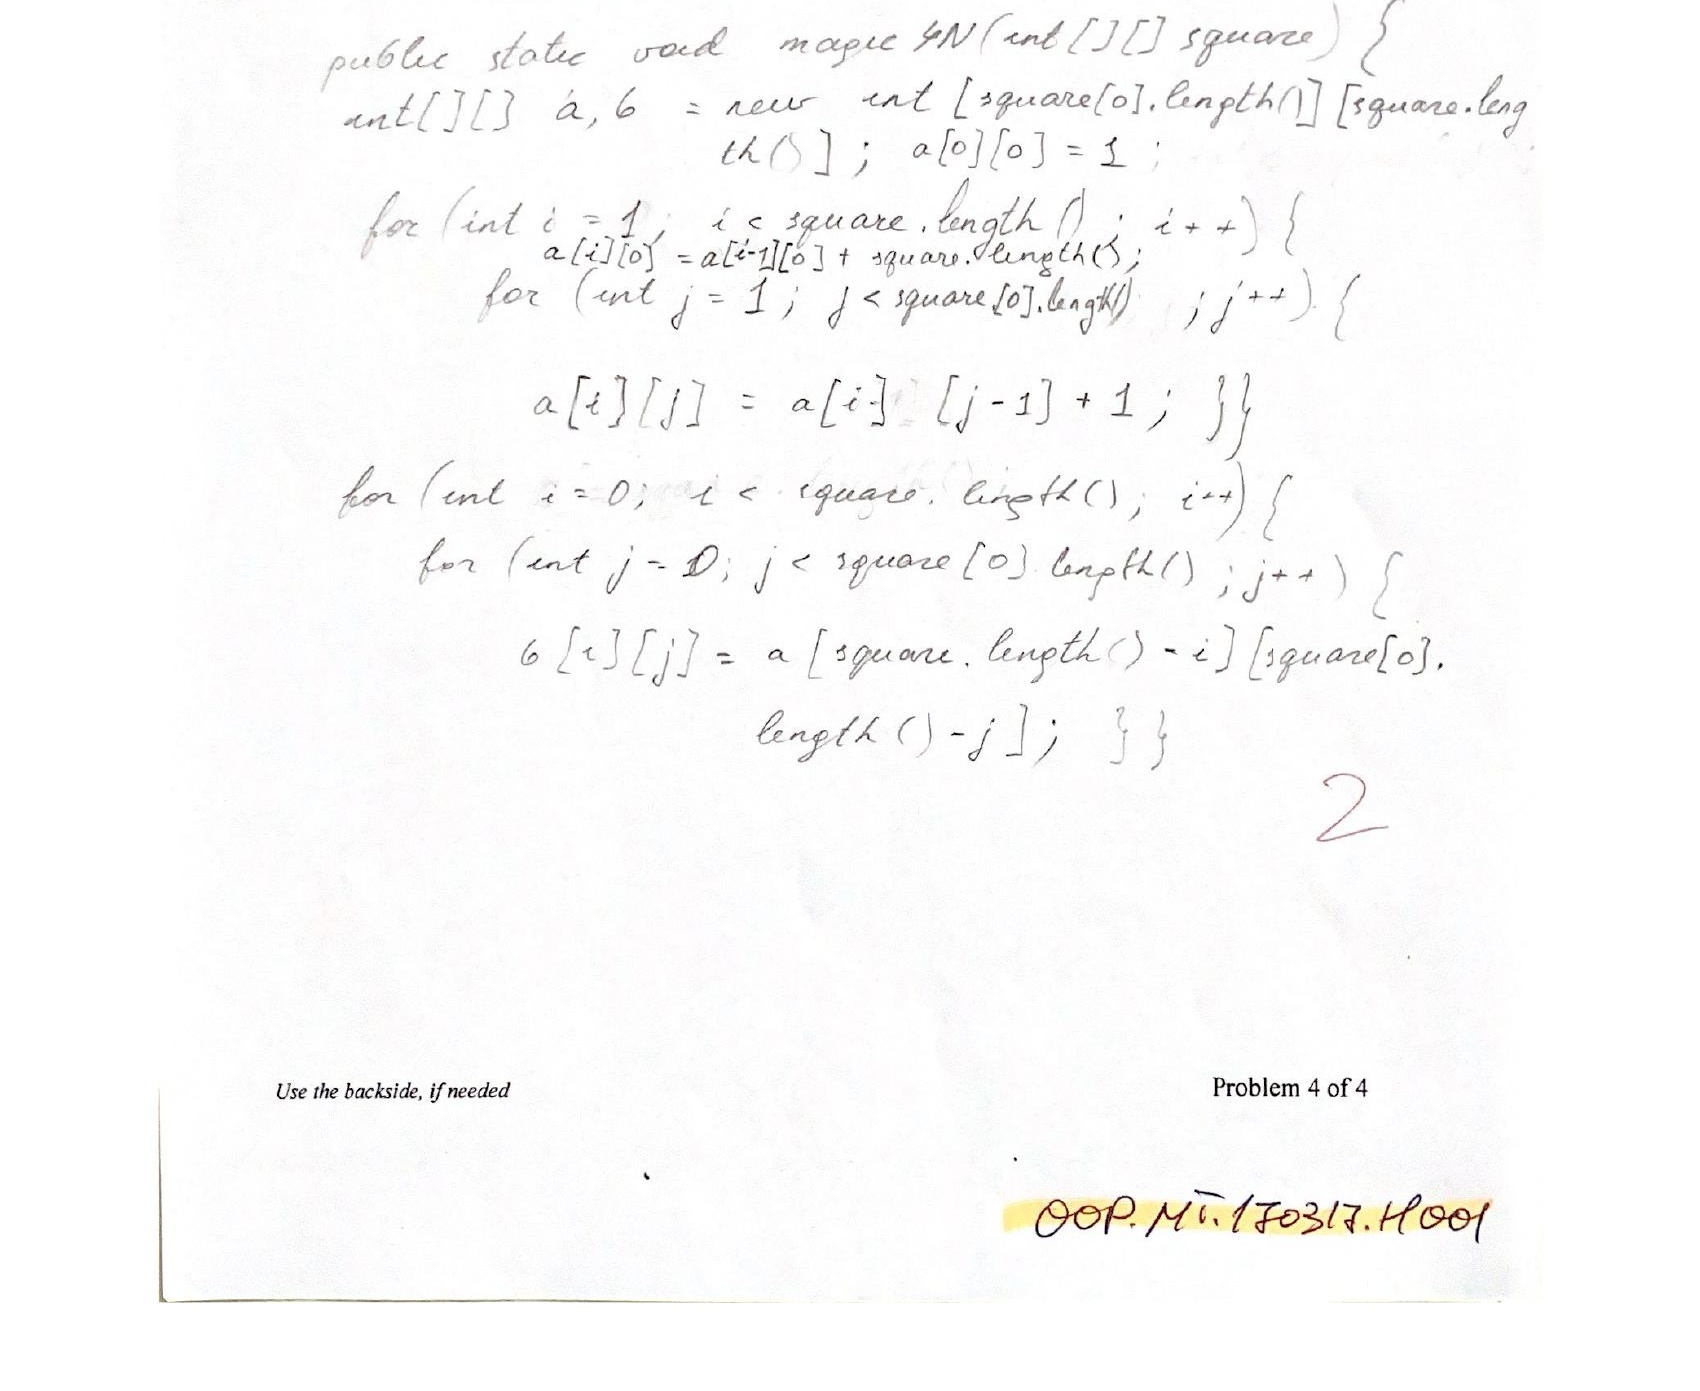 public static void magic 4N(int [][] square) {
int[][] a, b = new int [square[0].length()] [square.leng
th()]; a[0][0] = 1 ;
for (int i = 1; i < square.length(); i++) {
a[i][0] = a[i-1][0] + square.length();
for (int j = 1; j < square[0].length() ; j++) {
a[i][j] = a[i] [j-1] + 1; }}
for (int i = 0; i < square.length(); i++) {
for (int j = 0; j < square[0].length(); j++) {
b[i][j] = a[square.length() - i][square[0].
length() - j]; }}
2
Use the backside, if needed
Problem 4 of 4
OOP.MT.170317.H001